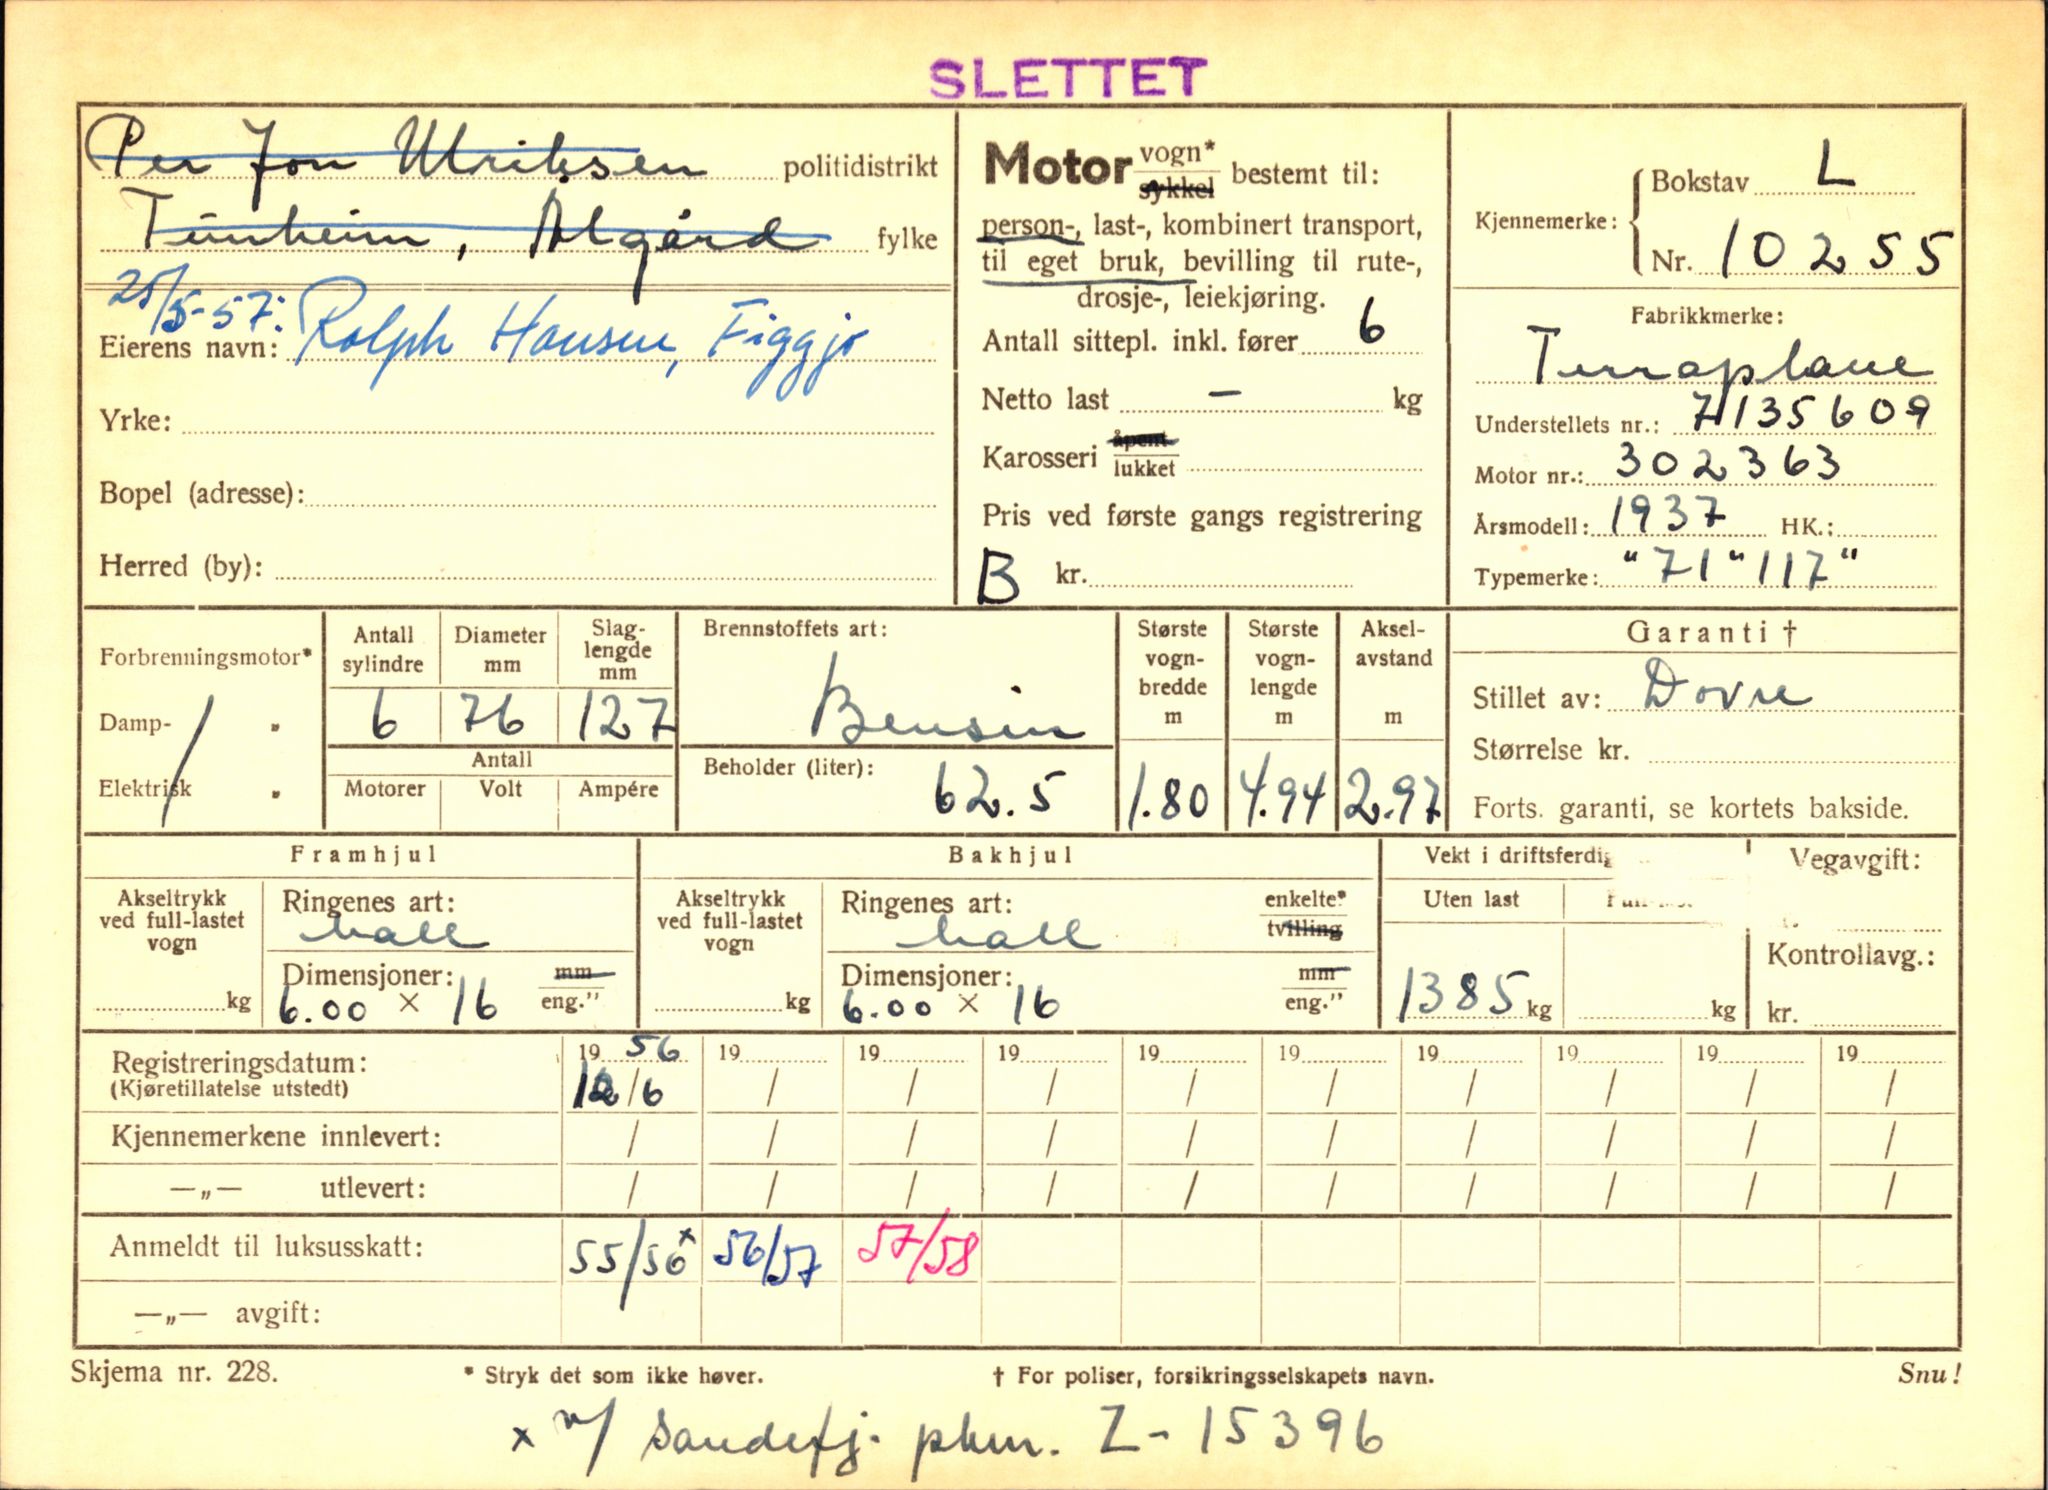 SLETTET
Per Jon Ulriksen politidistrikt
Tunheim, Ålgård fylke
25/5-57:
Eierens navn: Rolph Hansen, Figgjo
Yrke:
Bopel (adresse):
Herred (by):
Motor vogn* sykkel bestemt til:
person-, last-, kombinert transport,
til eget bruk, bevilling til rute-,
drosje-, leiekjøring.
Antall sittepl. inkl. fører 6
Netto last – kg
Karosseri åpent lukket
Pris ved første gangs registrering
B kr.
Kjennemerke: Bokstav L
Nr. 10255
Fabrikkmerke:
Terraplane
Understellets nr.: 7135609
Motor nr.: 302363
Årsmodell: 1937 HK.:
Typemerke: "71" 117"
Forbrenningsmotor*
Damp- „
Elektrisk „
Antall sylindre 6
Diameter mm 76
Slaglengde mm 127
Antall
Motorer Volt Ampére
Brennstoffets art:
Bensin
Beholder (liter): 62.5
Største vognbredde m 1.80
Største vognlengde m 4.94
Akselavstand m 2.97
Garanti †
Stillet av: Dovre
Størrelse kr.
Forts. garanti, se kortets bakside.
Framhjul
Akseltrykk ved full-lastet vogn kg
Ringenes art: hall
Dimensjoner: mm
6.00 × 16 eng."
Bakhjul
Akseltrykk ved full-lastet vogn kg
Ringenes art: enkelte* tvilling
hall
Dimensjoner: mm
6.00 × 16 eng."
Vekt i driftsferdig
Uten last
1385 kg kg
Vegavgift:
Kontrollavg.:
kr.
Registreringsdatum: 19 56 19 19 19 19 19 19 19 19 19
(Kjøretillatelse utstedt) 12/6 / / / / / / / / /
Kjennemerkene innlevert: / / / / / / / / / /
—„— utlevert: / / / / / / / / / /
Anmeldt til luksusskatt: 55/56 x 56/57 57/58
—„— avgift:
Skjema nr. 228. * Stryk det som ikke høver. † For poliser, forsikringsselskapets navn. Snu!
x v/ Sandefj. pkm. Z-15396